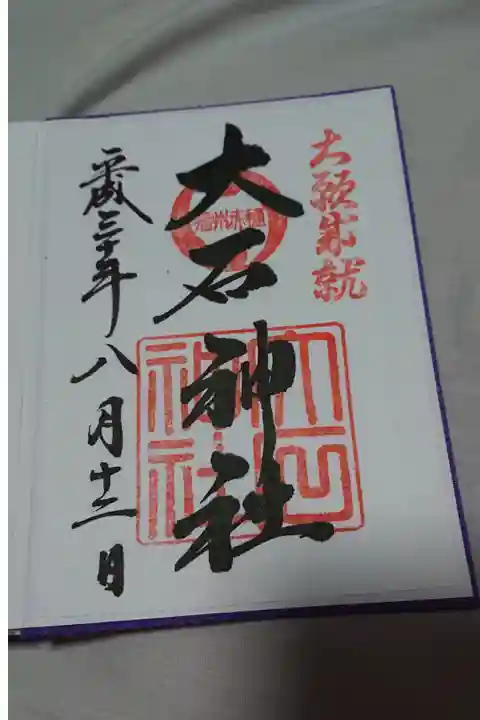 大願成就
播州赤穂
大石神社
大石神社
平成三十年八月十二日